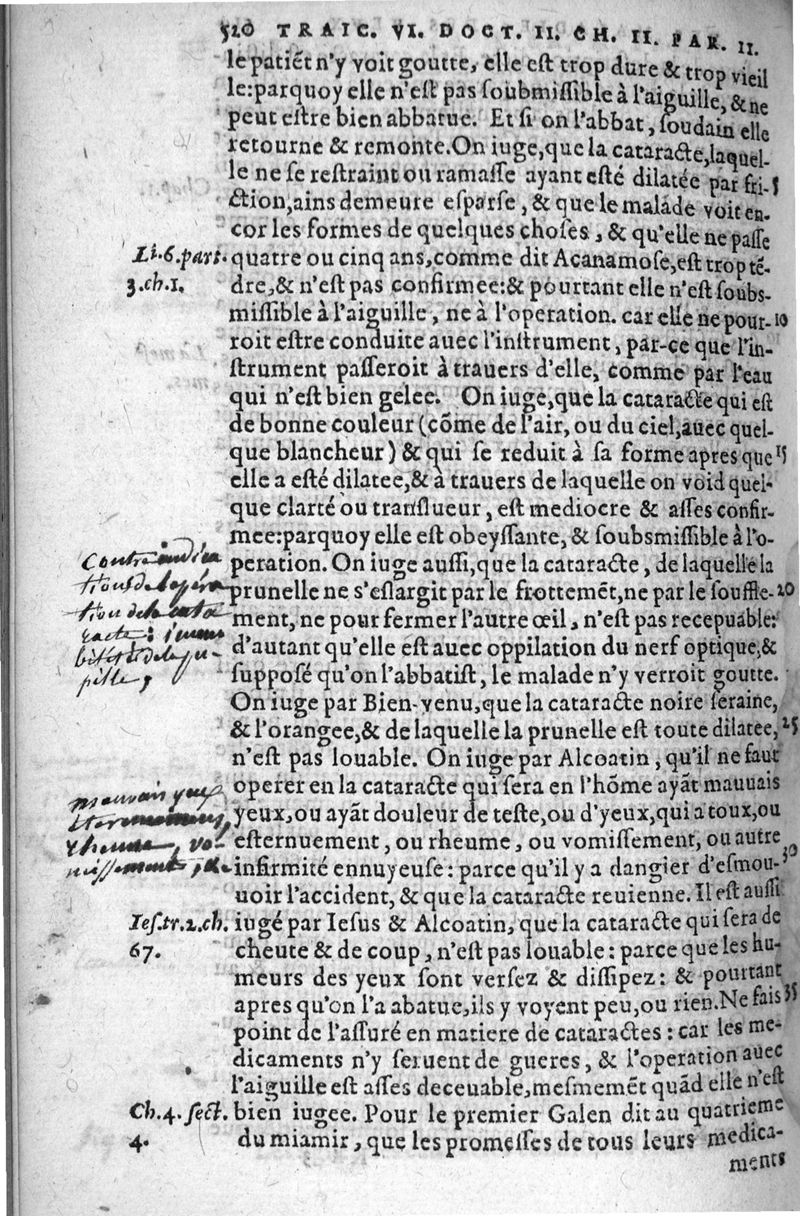 520 TRAIC. VI. DOCT. II. CH. II. PAR. II.
le patiẽt n'y voit goutte, elle est trop dure & trop vieil
le: parquoy elle n'est pas soubmissible à l'aiguille, & ne
peut estre bien abbatue. Et si on l'abbat, soudain elle
retourne & remonte. On iuge, que la cataracte, laquel-
le ne se restraint ou ramasse ayant esté dilatée par fri- 5
ction, ains demeure esparse, & que le malade voit en-
cor les formes de quelques choses, & qu'elle ne passe
Li. 6. part. quatre ou cinq ans, comme dit Acanamose, est trop tẽ-
3. ch. 1. dre, & n'est pas confirmee: & pourtant elle n'est soubs-
missible à l'aiguille, ne à l'operation. car elle ne pour- 10
roit estre conduite auec l'instrument, par-ce que l'in-
strument passeroit à trauers d'elle, comme par l'eau
qui n'est bien gelee. On iuge, que la cataracte qui est
de bonne couleur (cõme de l'air, ou du ciel, auec quel-
que blancheur) & qui se reduit à sa forme apres que 15
elle a esté dilatee, & à trauers de laquelle on void quel-
que clarté ou translueur, est mediocre & asses confir-
mee: parquoy elle est obeyssante, & soubsmissible à l'o-
peration. On iuge aussi, que la cataracte, de laquelle la
prunelle ne s'eslargit par le frottemẽt, ne par le souffle- 20
ment, ne pour fermer l'autre œil, n'est pas recepuable:
d'autant qu'elle est auec oppilation du nerf optique, &
supposé qu'on l'abbatist, le malade n'y verroit goutte.
On iuge par Bien-venu, que la cataracte noire seraine,
& l'orangee, & de laquelle la prunelle est toute dilatee, 25
n'est pas louable. On iuge par Alcoatin, qu'il ne faut
mauvais yeux
operer en la cataracte qui sera en l'hõme ayãt mauuais
yeux, ou ayãt douleur de teste, ou d'yeux, qui a toux, ou
esternuement, ou rheume, ou vomissement, ou autre
infirmité ennuyeuse: parce qu'il y a dangier d'esmou- 30
uoir l'accident, & que la cataracte reuienne. Il est aussi
Ies. tr. 2. ch. iugé par Iesus & Alcoatin, que la cataracte qui sera de
67. cheute & de coup, n'est pas louable: parce que les hu-
meurs des yeux sont versez & dissipez: & pourtant
apres qu'on l'a abatue, ils y voyent peu, ou rien. Ne fais 35
point de l'assuré en matiere de cataractes: car les me-
dicaments n'y seruent de gueres, & l'operation auec
l'aiguille est asses deceuable, mesmemẽt quãd elle n'est
Ch. 4. sect. bien iugee. Pour le premier Galen dit au quatrieme
4. du miamir, que les promesses de tous leurs medica-
ments